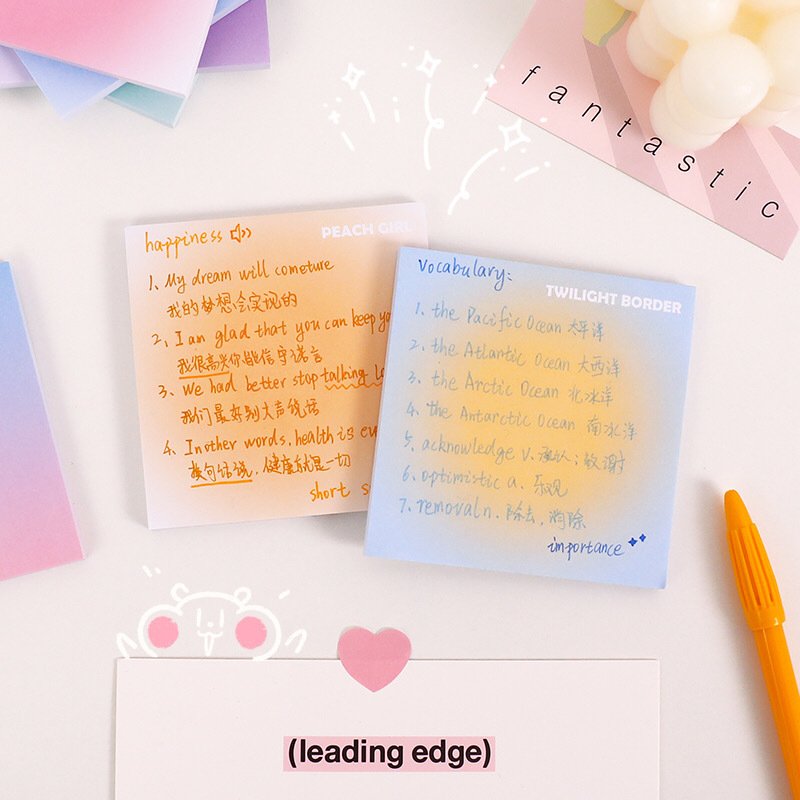 fantastic
happiness
PEACH GIRL
1、My dream will cometure
我的梦想会实现的
2、I am glad that you can keep
我很高兴你能信守诺言
3、We had better stop talking
我们最好别大声说话
4、In other words, health is
换句话说，健康就是一切
short
Vocabulary:
TWILIGHT BORDER
1、the Pacific Ocean 太平洋
2、the Atlantic Ocean 大西洋
3、the Arctic Ocean 北冰洋
4、the Antarctic Ocean 南冰洋
5、acknowledge v. 承认；致谢
6、optimistic a. 乐观
7、removal n. 除去，消除
importance
(leading edge)